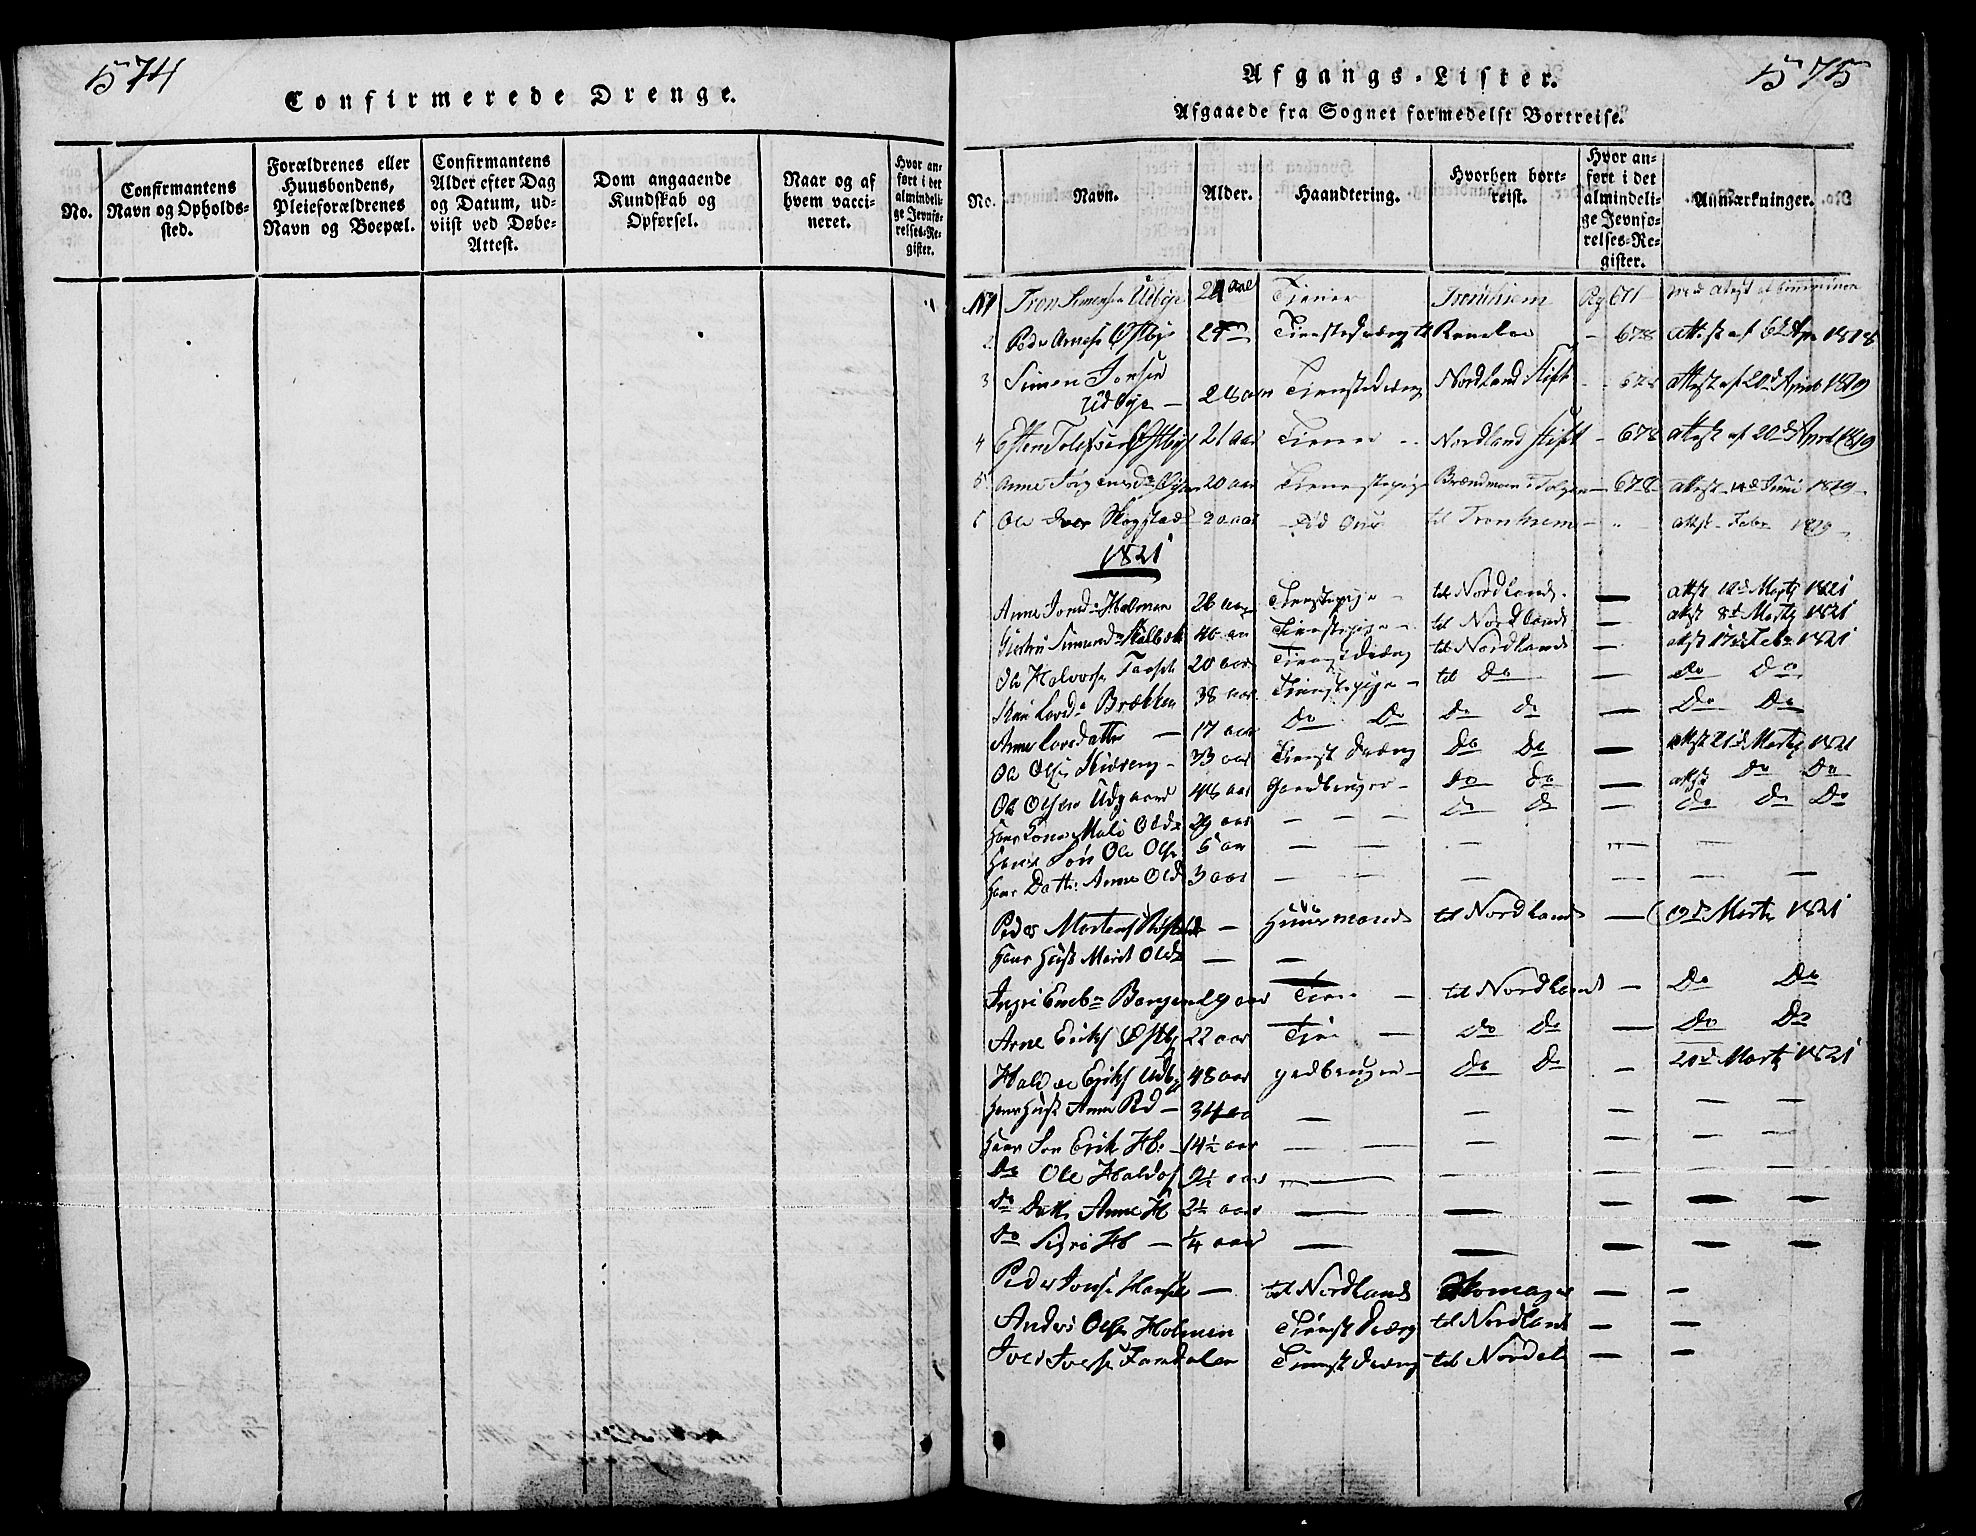 574
Confirmerede Drenge.
No.
Confirmantens Navn og Opholds-sted.
Forældrenes eller Huusbondens, Pleieforældrenes Navn og Boepæl.
Confirmantens Alder efter Dag og Datum, ud-viist ved Døbe-Attest.
Dom angaaende Kundskab og Opførsel.
Naar og af hvem vacci-neret.
Hvor an-ført i det almindeli-ge Jevnfø-relses-Re-gister.
575
Afgangs-Lister.
Afgaaede fra Sognet formedelst Bortreise.
No.
Navn.
Alder.
Haandtering.
Hvorhen bort-reist.
Hvor an-ført i det almindeli-ge Jevnfø-relses-Re-gister.
Anmærkninger.
Tron Simensen Udbye 24 aar Tiener Tronhiem 677
2 Peder Arnes Østbye 678 1818
3 Simen Jonsen Udbye Tienestedræng Nordland Stift 678 Attest af 20d April 1819
4 Esten Tolefsen Østbye 21 aar Tiener Nordland Stift - 678 Attest af 20d April 1819
5 Anne 20 aar Tienestepige - 678 Attest 14d Juni 1819
6 Ole Skogstad 20 aar til Tronhiem - " Attest Febr 1819
1821
Anne Jonsd Holmen 26 aar Tienstepige - til Nordland - Attst 12d Martz 1821
Simensd 46 aar Tienstepige - til Nordland - Attst 8d Martz 1821
Ole Halvorsen 20 aar Tienstdræng til Nordland - Attst 17d Febr 1821
Larsd Brækken 38 aar Tienstepige - til Do - Do Do
Anne Larsdatter - 17 aar Do Do Do Do - Do Do
Ole Olsen 33 aar Tienstdræng Do Do - Attst 21d Martz 1821
Ole Olsen Udgaard 48 aar Gaardbruger - Do Do - Attst Do Do
Hans Kone Mali Olsd 29 aar - - - Do Do - Do Do Do
Hans Søn Ole Olsen 5 aar - - - - -
Hans Datter Anne Olsd 3 aar - - - - - -
Peder Mortens - Huusmand til Nordland - 19d Martz 1821
Hans Hust Marit Olsd - -
Ingri 29 aar Tien - til Nordland - Do Do
Arne Eriks Østby 22 aar Tien - Do Do - Do Do
Haldoe Eriks Udby 48 aar Do Do - 20d Martz 1821
Hans Hust Anne - 34 aar - - - - -
Hans Søn Erik H. - 14½ aar - - - - - -
Do Ole Haldos 9½ aar - - - - -
Do Datt Anne H 3½ aar - - - - -
Do Sigri H - ¼ aar - - - - -
Peder Jonsen - til Nordland Skomager - -
Anders Olsen Holmen Tienstdræng til Nordland - -
Iver Iversen Tienstdræng - til Nordl - -